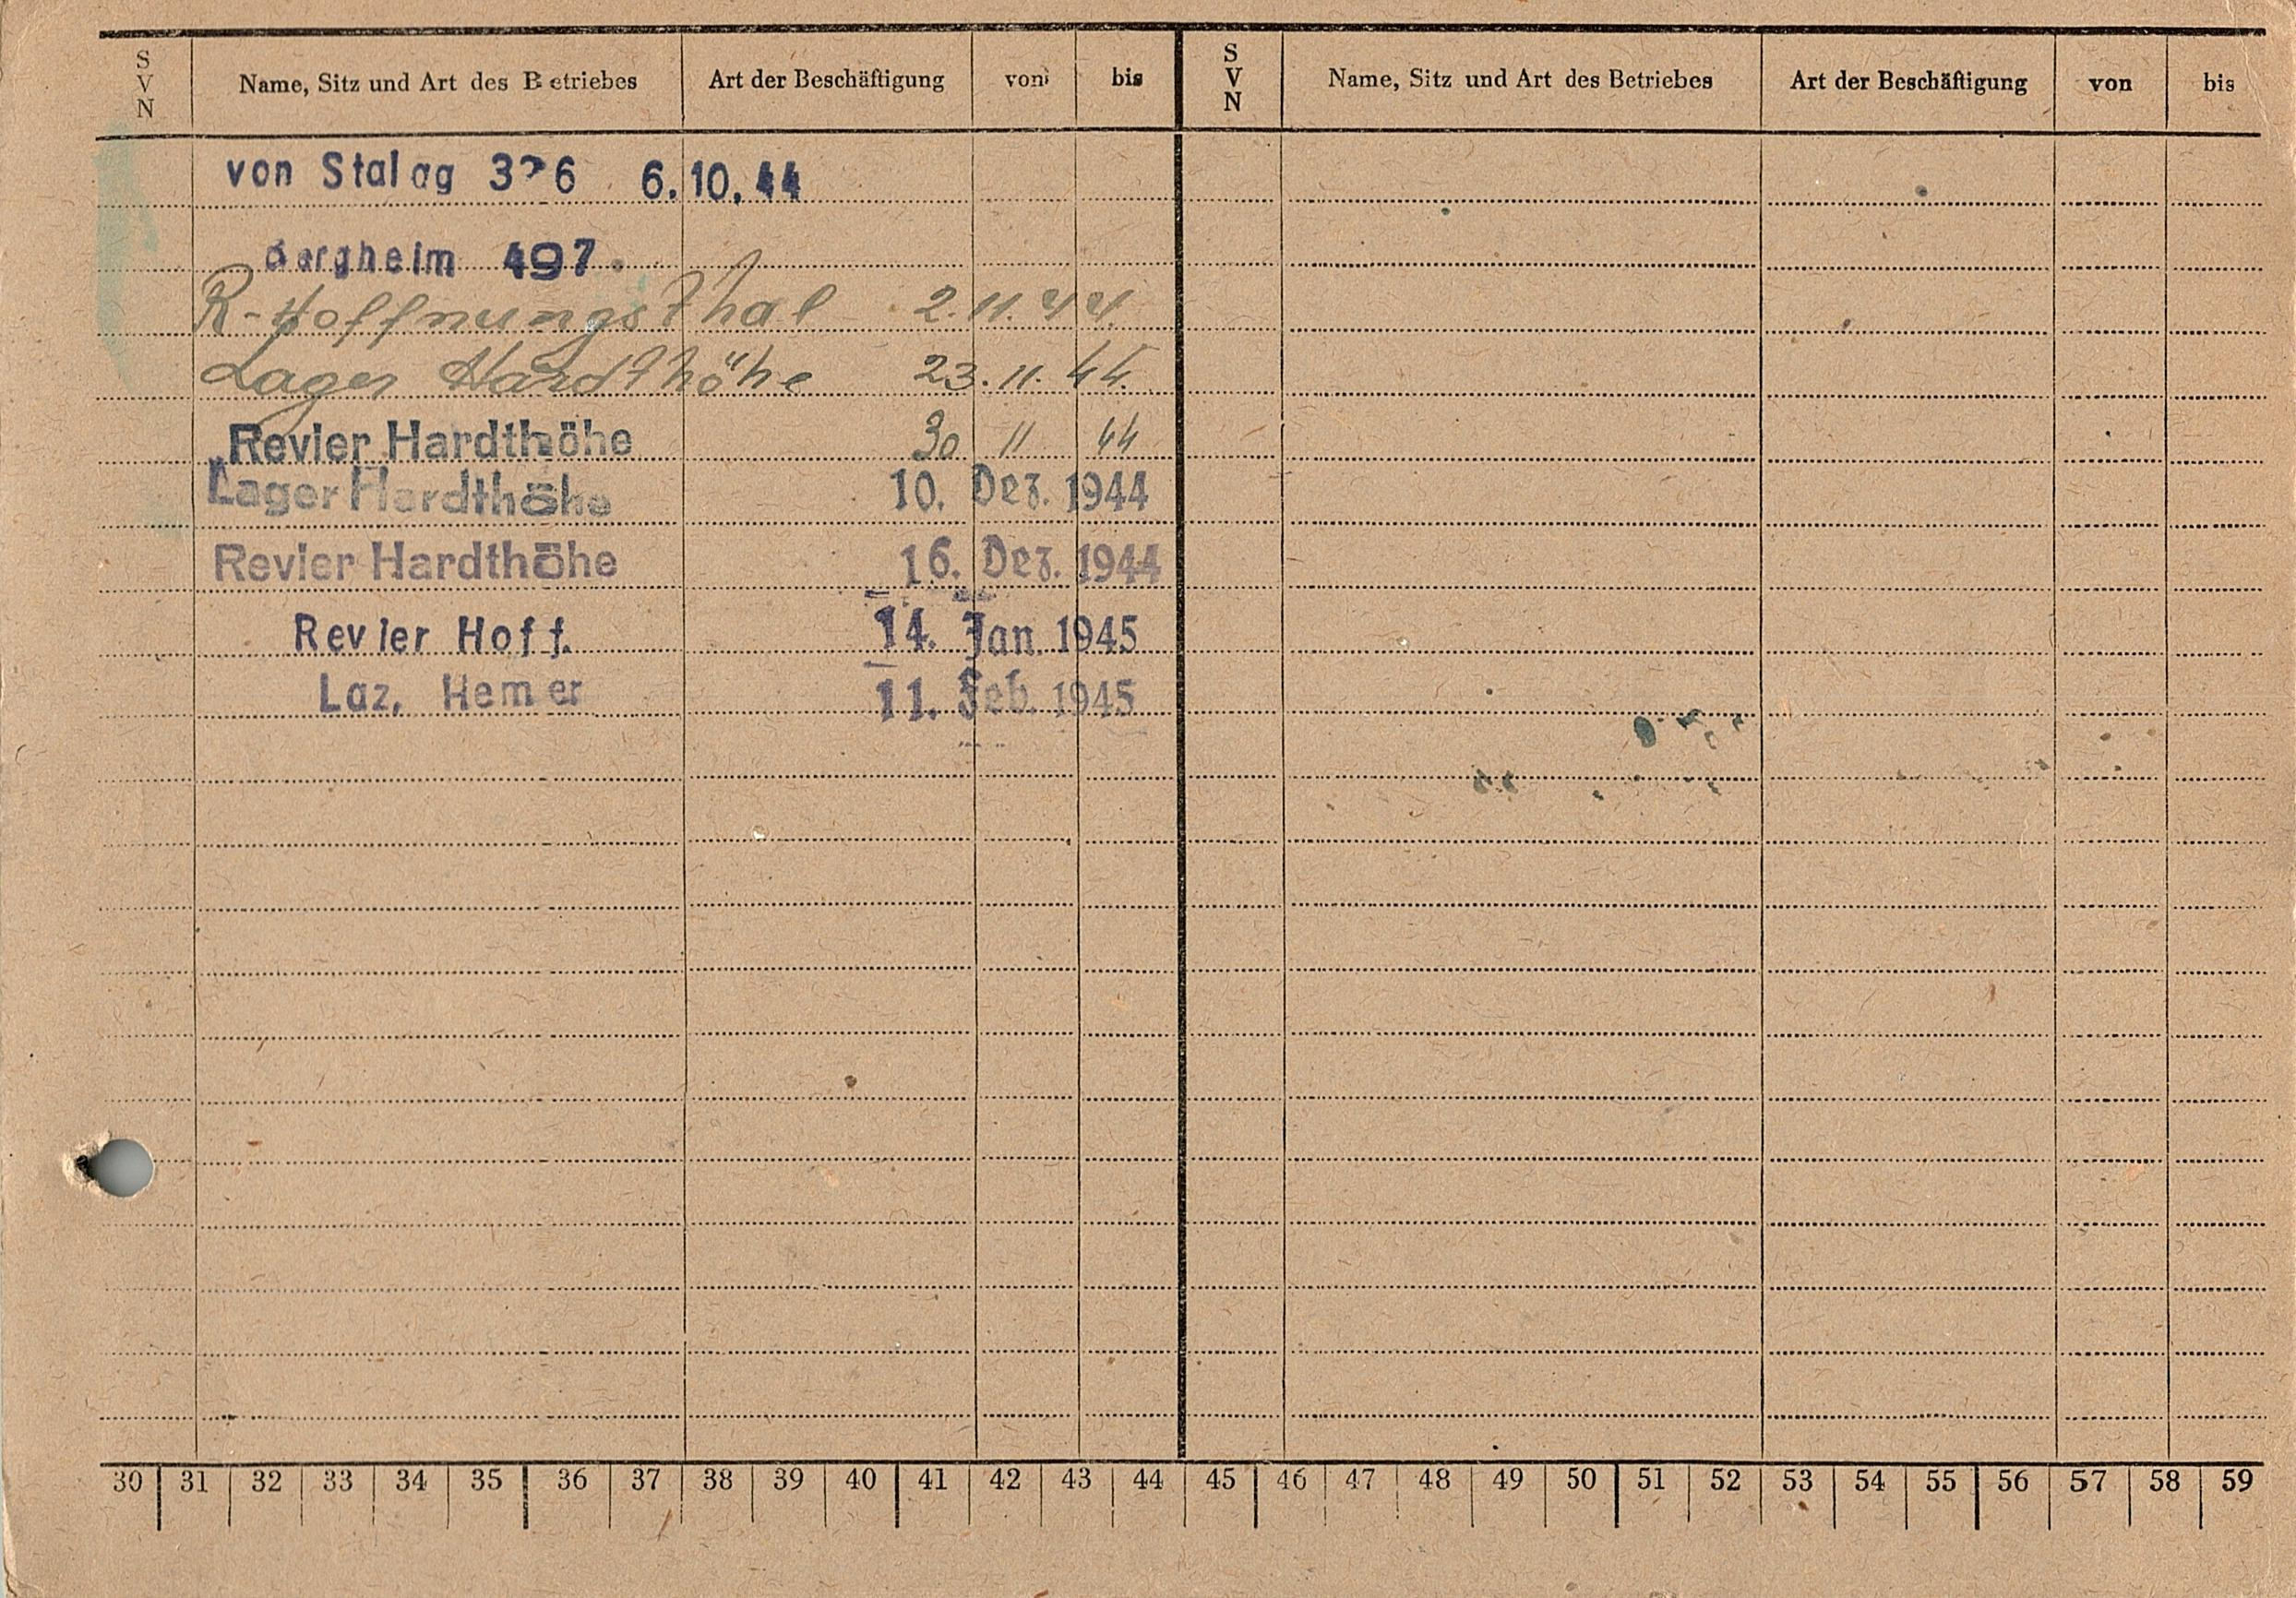 S V N Name, Sitz und Art des Betriebes Art der Beschäftigung von bis S V N Name, Sitz und Art des Betriebes Art der Beschäftigung von bis
von Stalag 326 6.10.44
Bergheim 497
R-Hoffnungsthal 2.11.44.
Lager Hardthöhe 23.11.44.
Revier Hardthöhe 30 11 44
Lager Hardthöhe 10. Dez. 1944
Revier Hardthöhe 16. Dez. 1944
Revier Hoff. 14. Jan. 1945
Laz. Hemer 11. Feb. 1945
30 31 32 33 34 35 36 37 38 39 40 41 42 43 44 45 46 47 48 49 50 51 52 53 54 55 56 57 58 59